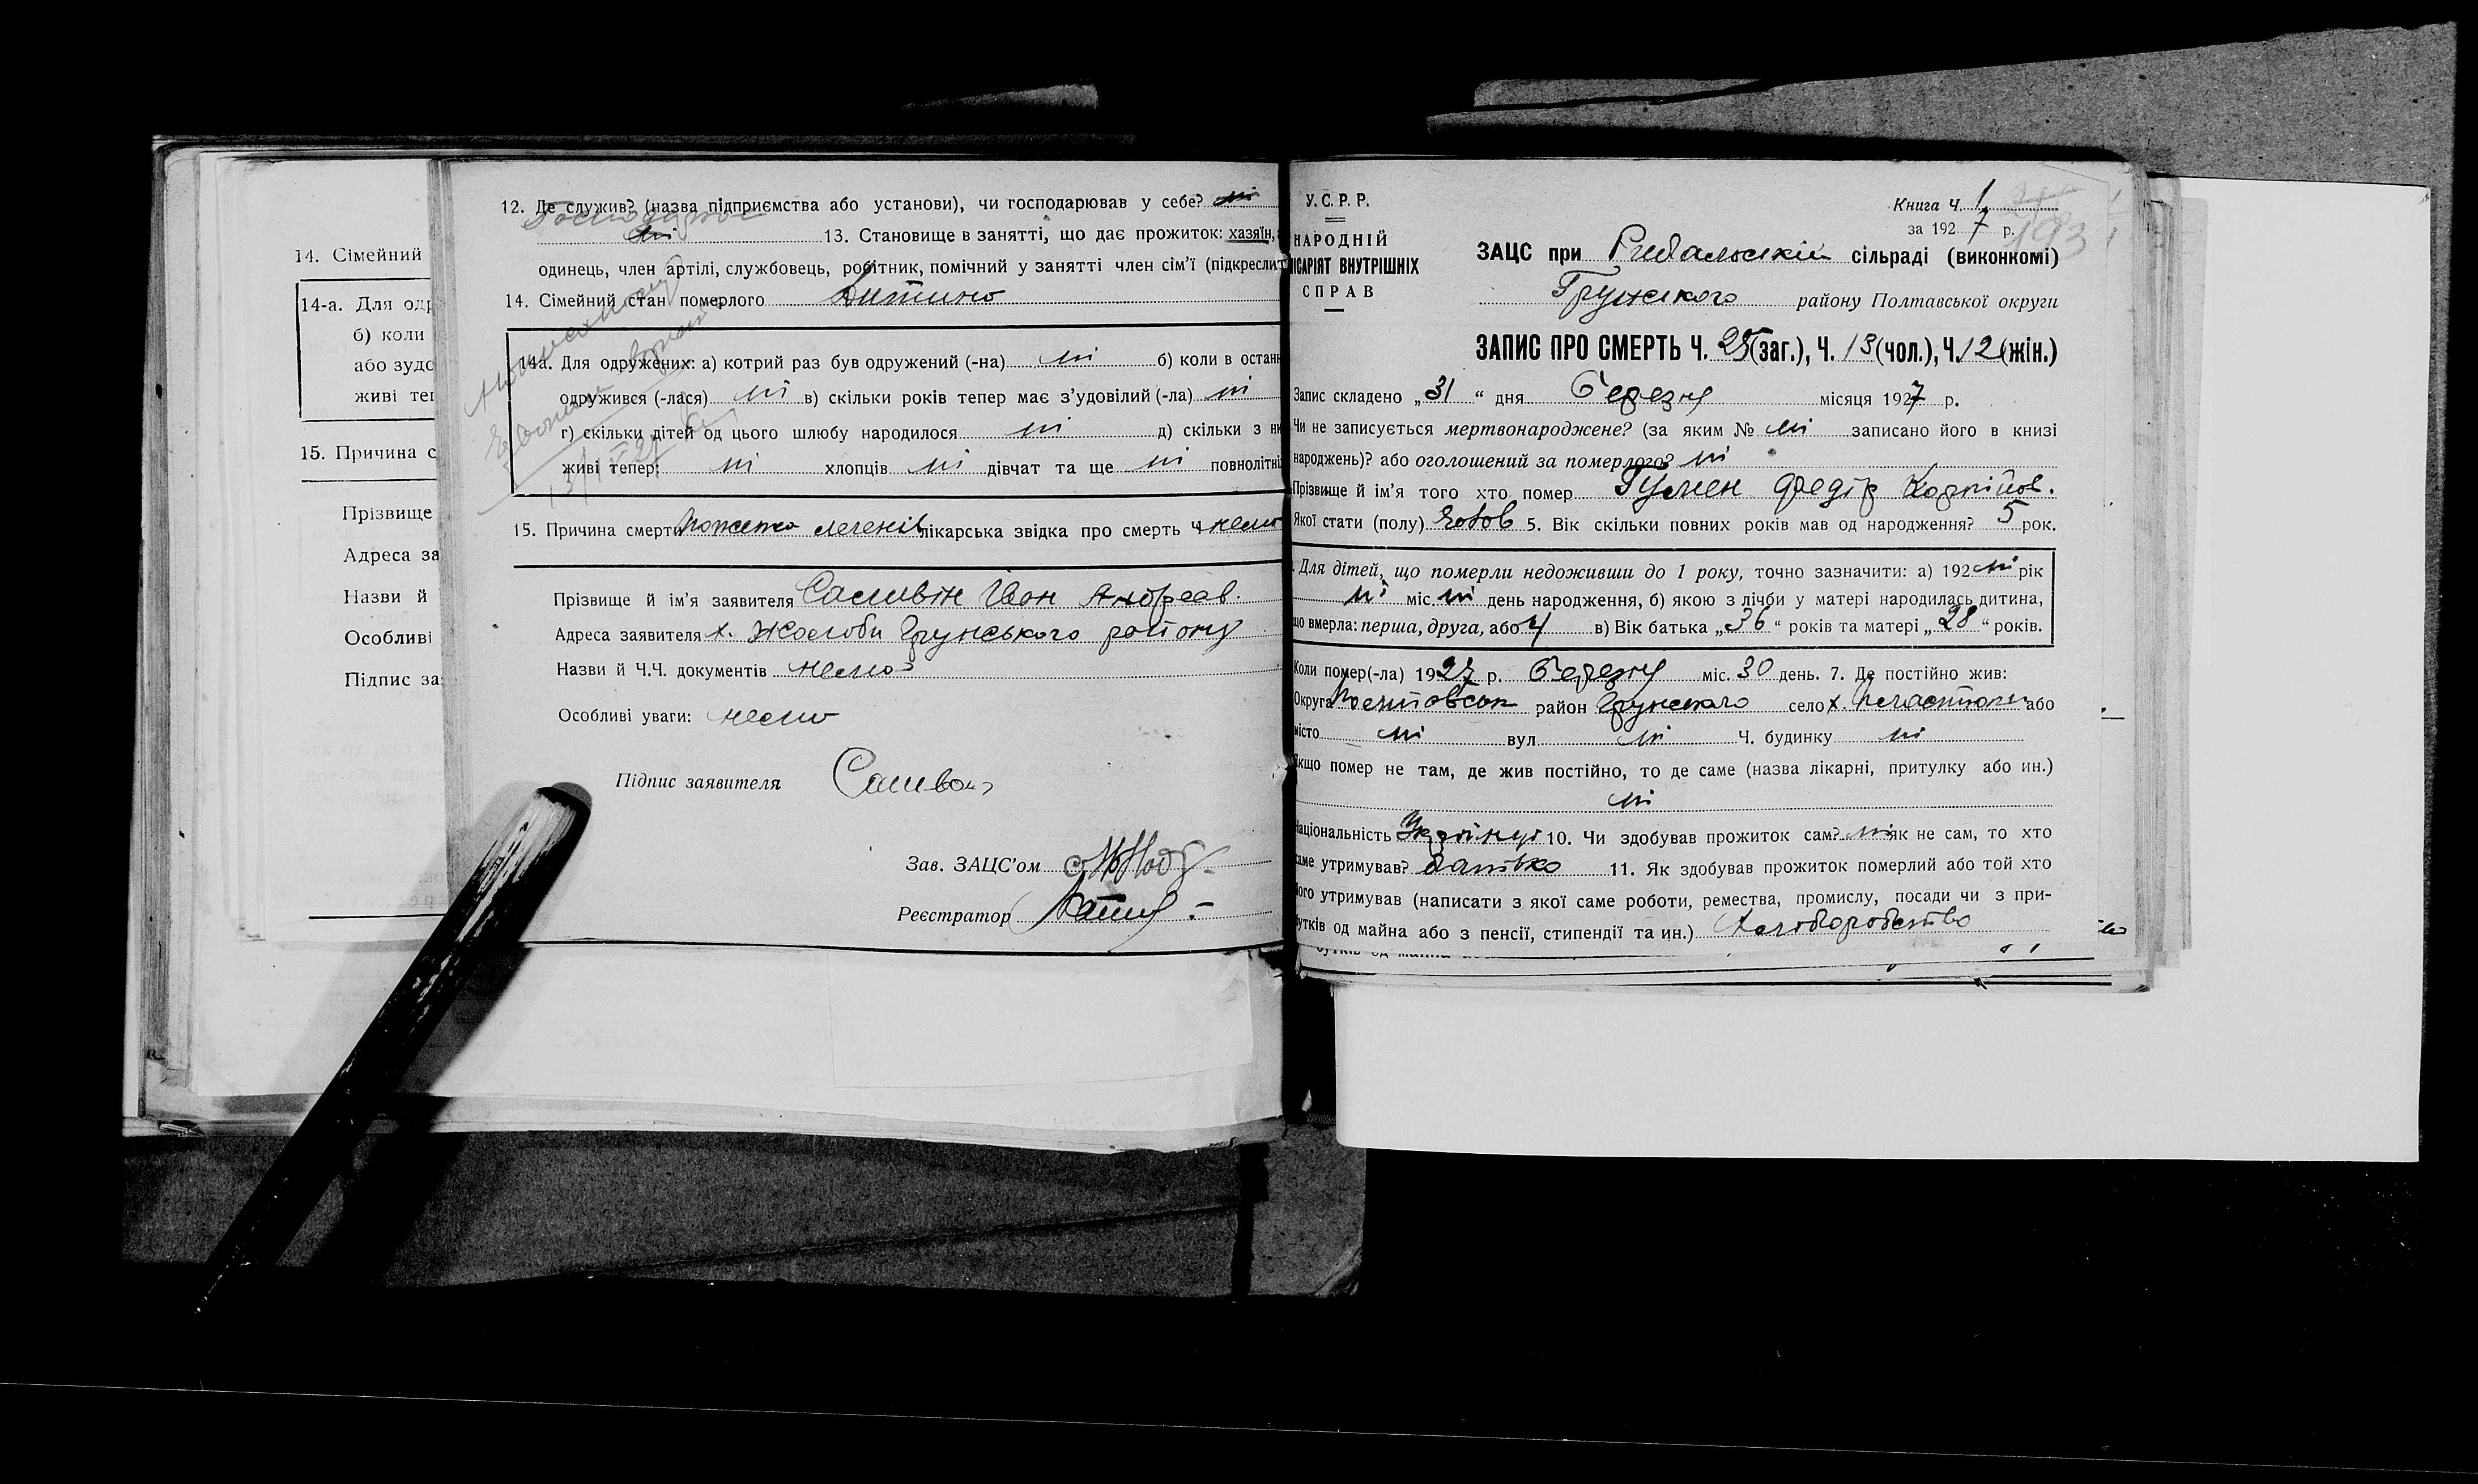 14. Сімейний
14-а. Для одр
б) коли
або зудо
живі теп
15. Причина с
Прізвище
Адреса за
Назви й
Особливі
Підпис за
12. Де служив? (назва підприємства або установи), чи господарював у себе? ні
ні 13. Становище в занятті, що дає прожиток: хазяїн,
одинець, член артілі, службовець, робітник, помічний у занятті член сім'ї (підкреслит
14. Сімейний стан померлого Дитина
14а. Для одружених: а) котрий раз був одружений (-на) ні б) коли в останн
одружився (-лася) ні в) скільки років тепер має з'удовілий (-ла) ні
г) скільки дітей од цього шлюбу народилося ні д) скільки з ни
живі тепер: ні хлопців ні дівчат та ще ні повнолітні
15. Причина смерти легенів лікарська звідка про смерть ч нема
Прізвище й ім'я заявителя Іван Андреев.
Адреса заявителя х. Жолоби Грунського району
Назви й Ч.Ч. документів нема
Особливі уваги: нема
Підпис заявителя
Зав. ЗАЦС'ом
Реєстратор
У.С.Р.Р.
НАРОДНІЙ
ІСАРІЯТ ВНУТРІШНІХ
СПРАВ
Книга Ч. 1
за 1927 р.
193
ЗАЦС при Рибальській сільраді (виконкомі)
Грунського району Полтавської округи
ЗАПИС ПРО СМЕРТЬ Ч. 25 (заг.), Ч. 13 (чол.), Ч. 12 (жін.)
Запис складено „31 “ дня Березня місяця 1927 р.
Чи не записується мертвонароджене? (за яким № ні записано його в книзі
народжень)? або оголошений за померлого? ні
Прізвище й ім'я того хто помер Гумен Федір Карпійов.
Якої стати (полу) 5. Вік скільки повних років мав од народження? 5 рок.
Для дітей, що померли недоживши до 1 року, точно зазначити: а) 192 ні рік
ні міс. ні день народження, б) якою з лічби у матері народилась дитина,
що вмерла: перша, друга, або 4 в) Вік батька „36“ років та матері „28“ років.
Коли помер(-ла) 1927 р. Березня міс. 30 день. 7. Де постійно жив:
Округа район Грунського село х. або
місто ні вул ні Ч. будинку ні
Якщо помер не там, де жив постійно, то де саме (назва лікарні, притулку або ин.)
ні
Національність 10. Чи здобував прожиток сам? ні як не сам, то хто
саме утримував? батько 11. Як здобував прожиток померлий або той хто
його утримував (написати з якої саме роботи, ремества, промислу, посади чи з при-
бутків од майна або з пенсії, стипендії та ин.) Хлоборобство